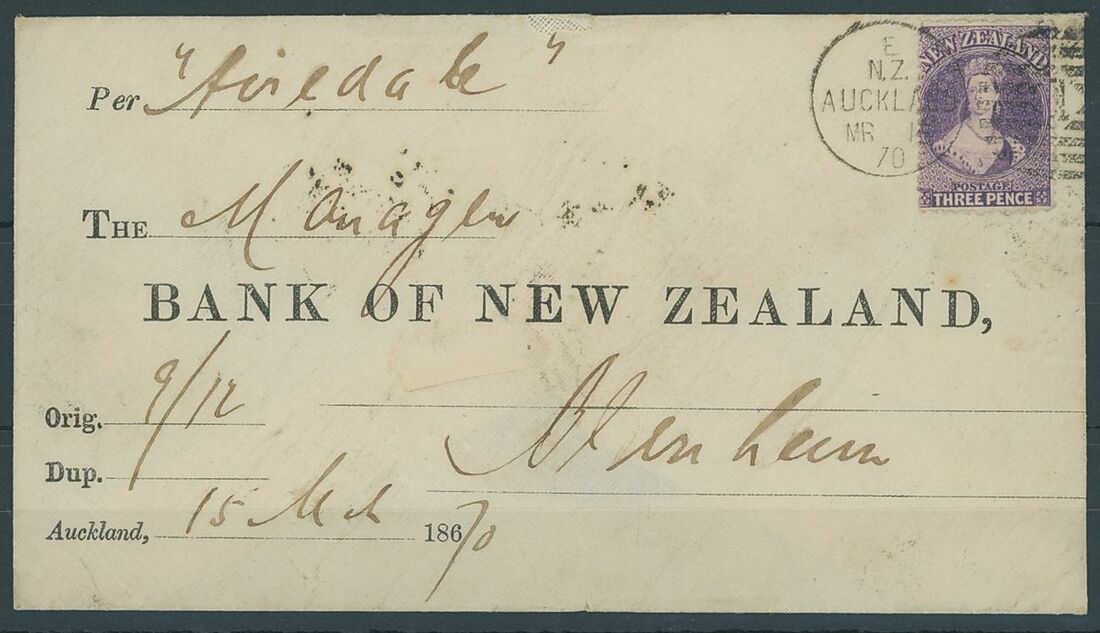 Per "Airedale"
E
N.Z.
AUCKLA
MR 1
70
NEW ZEALAND
POSTAGE
THREE PENCE
THE Manager
BANK OF NEW ZEALAND,
Orig. 9/12
Blenheim
Dup.
Auckland, 15 Mch 18670